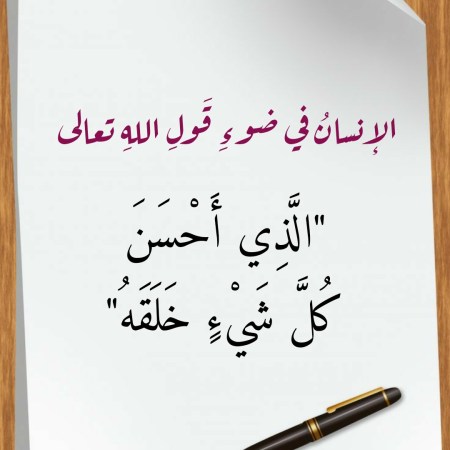 الإنسانُ في ضوءِ قَولِ اللهِ تعالى
"الَّذِي أَحْسَنَ
كُلَّ شَيْءٍ خَلَقَهُ"